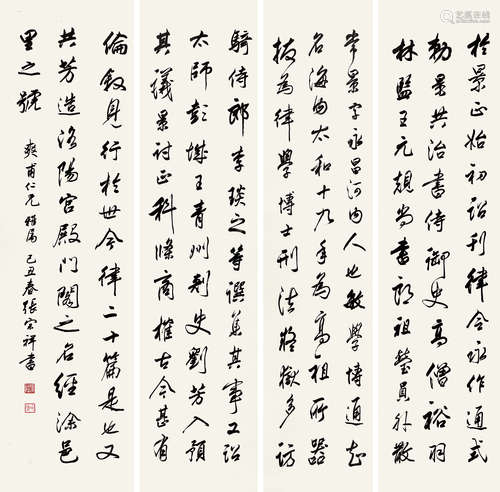 於景正始初詔刊律令永作通式
勅景共治書侍御史高僧裕羽
林監王元龜尚書郎祖瑩員外散
常景字永昌河內人也敏學博通知
名海內太和十九年為高祖所器
拔為律學博士刑法疑獄多訪
騎侍郎李琰之等譔集其事又詔
太師彭城王青州刺史劉芳入預
其議景討正科條商榷古今甚有
倫敘見行於世今律二十篇是也又
共芳造洛陽宮殿門閣之名經涂邑
里之號
甫仁兄屬己丑春張宗祥書